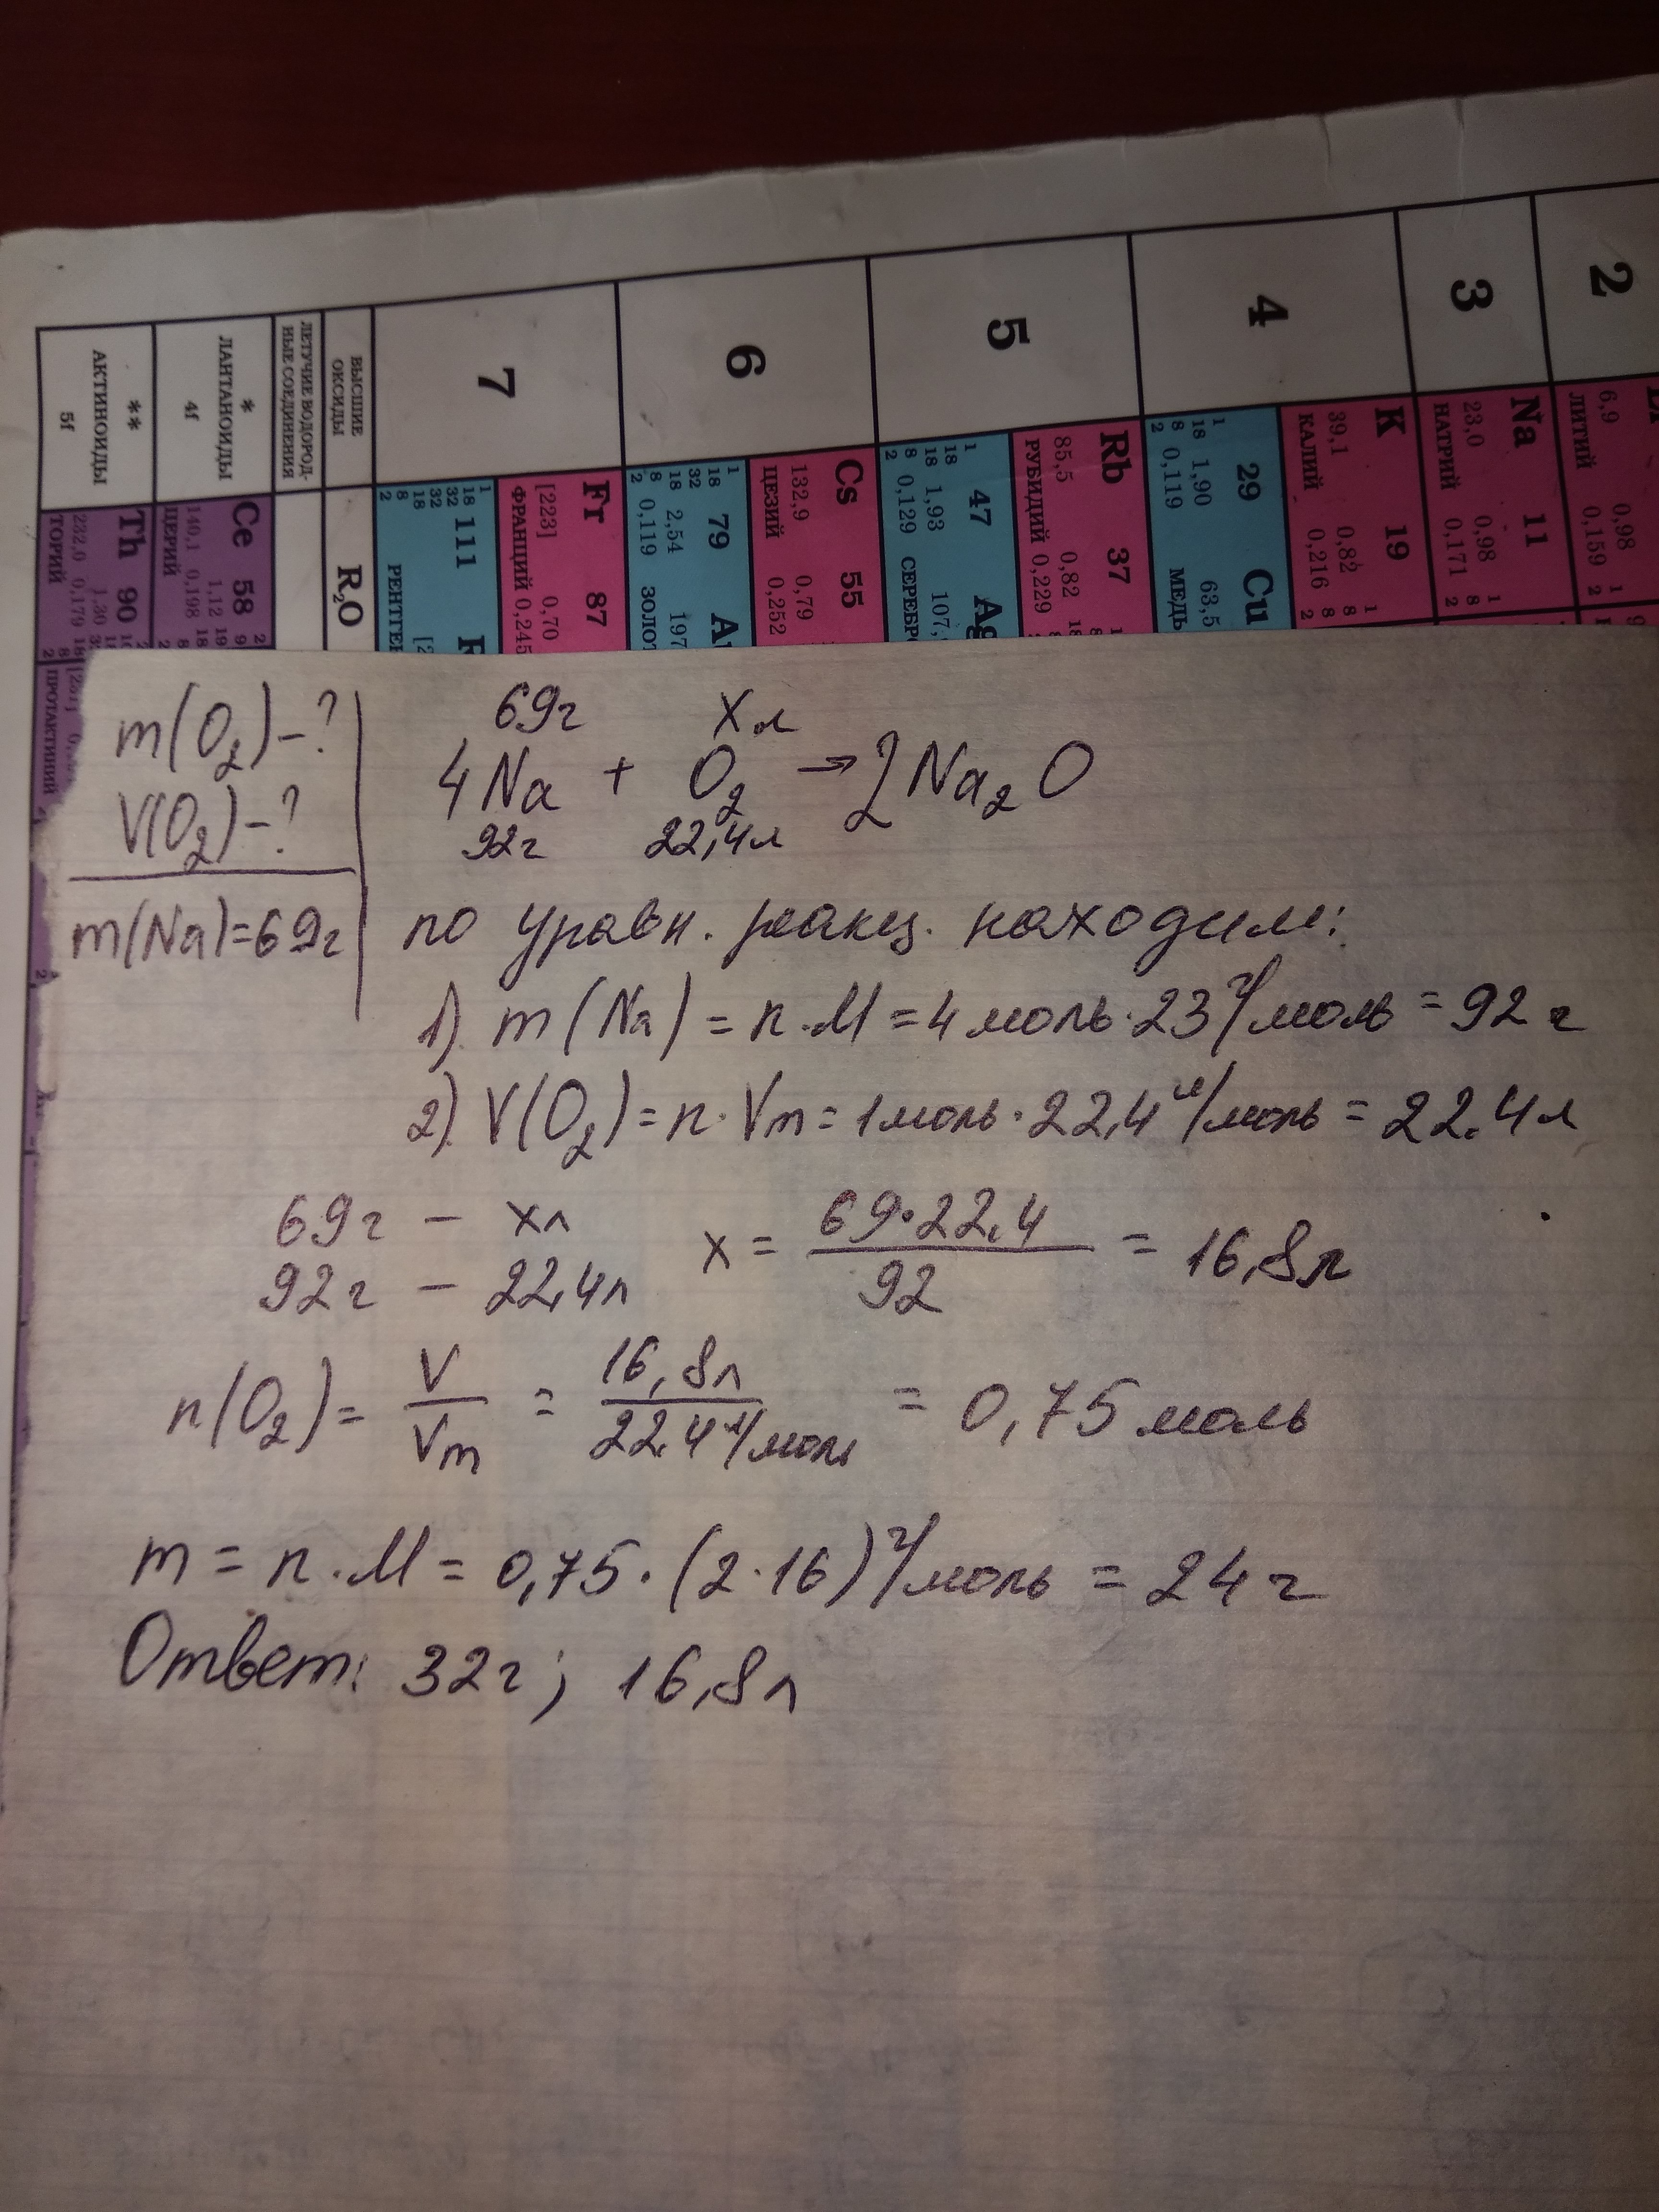 2
3
4
5
6
7
ВЫСШИЕ ОКСИДЫ
ЛЕТУЧИЕ ВОДОРОД-
НЫЕ СОЕДИНЕНИЯ
*
ЛАНТАНОИДЫ
4f
**
АКТИНОИДЫ
5f
6,9 0,98
ЛИТИЙ 0,159
Na 11
23,0 0,98
НАТРИЙ 0,171
1
8
2
K 19
39,1 0,82
КАЛИЙ 0,216
1
8
8
2
29 Cu
1,90 63,5
0,119 МЕДЬ
1
18
8
2
Rb 37
85,5 0,82
РУБИДИЙ 0,229
47 Ag
1,93 107,
0,129 СЕРЕБР
1
18
18
8
2
Cs 55
132,9 0,79
ЦЕЗИЙ 0,252
79
2,54 197
0,119 ЗОЛОТ
1
18
32
18
8
2
Fr 87
[223] 0,70
ФРАНЦИЙ 0,245
111
РЕНТГЕ
1
18
32
32
18
8
2
R₂O
Ce 58
140,1 1,12
ЦЕРИЙ 0,198
Th 90
232,0 1,30
ТОРИЙ 0,179
ПРОТАКТИНИЙ
m(O₂)-?
V(O₂)-?
m(Na)=69г
69г xл
4Na + O₂ → 2Na₂O
92г 22,4л
по уравн. реакц. находим:
1) m(Na) = n·M = 4 моль·23 г/моль = 92 г
2) V(O₂) = n·Vm = 1моль·22,4 л/моль = 22,4л
69г – xл
92г – 22,4л
x = 69·22,4 / 92 = 16,8л
n(O₂) = V / Vm = 16,8л / 22,4 л/моль = 0,75 моль
m = n·M = 0,75·(2·16) г/моль = 24 г
Ответ: 32г; 16,8л